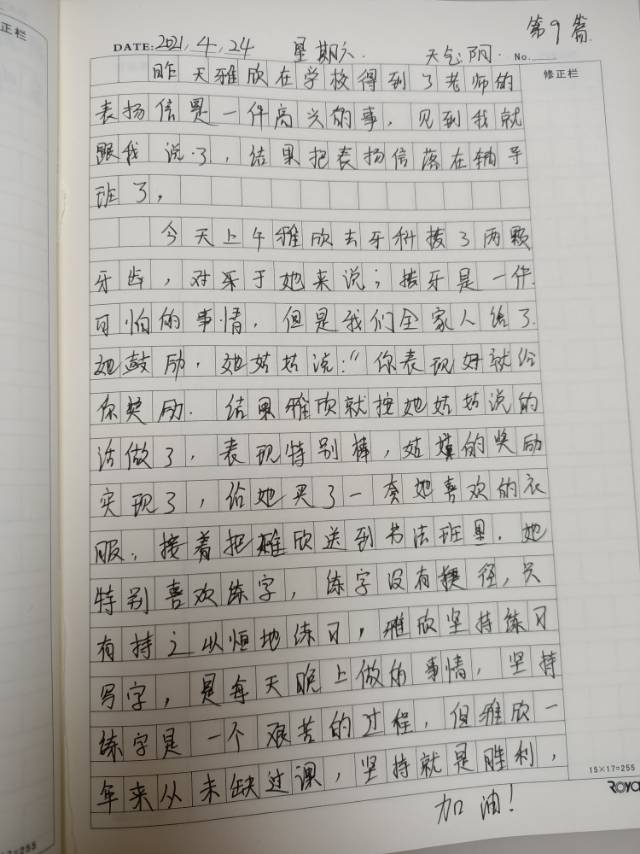 正栏
第9篇
DATE: 2021.4.24 星期六. 天气阴. No.
修正栏
昨天雅欣在学校得到了老师的
表扬信是一件高兴的事，见到我就
跟我说了，结果把表扬信落在辅导
班了，
今天上午雅欣去牙科拔了两颗
牙齿，对于她来说；拔牙是一件
可怕的事情，但是我们全家人给了
她鼓励，她姑姑说："你表现好就给
你奖励. 结果雅欣就按她姑姑说的
话做了，表现特别棒，姑姑的奖励
实现了，给她买了一套她喜欢的衣
服，接着把雅欣送到书法班里. 她
特别喜欢练字，练字没有捷径，只
有持之以恒地练习，雅欣坚持练习
写字，是每天晚上做的事情，坚持
练字是一个艰苦的过程，但雅欣一
年来从未缺过课，坚持就是胜利，
加油！
15×17=255
ROYA
=255